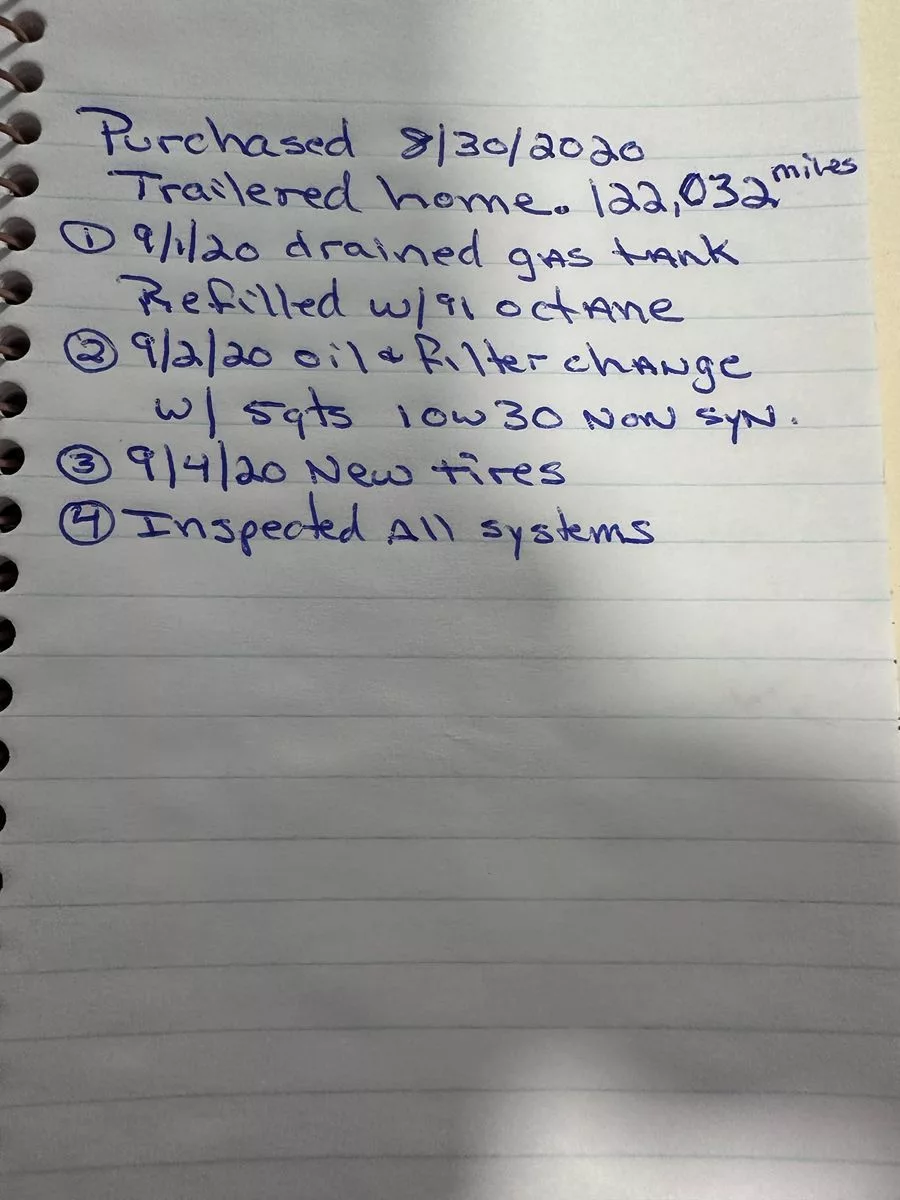 Purchased 8/30/2020
Trailered home. 122,032 miles
① 9/1/20 drained gas tank
Refilled w/91 octane
② 9/2/20 oil & filter change
w/ 5qts 10w30 Non syn.
③ 9/4/20 New tires
④ Inspected All systems